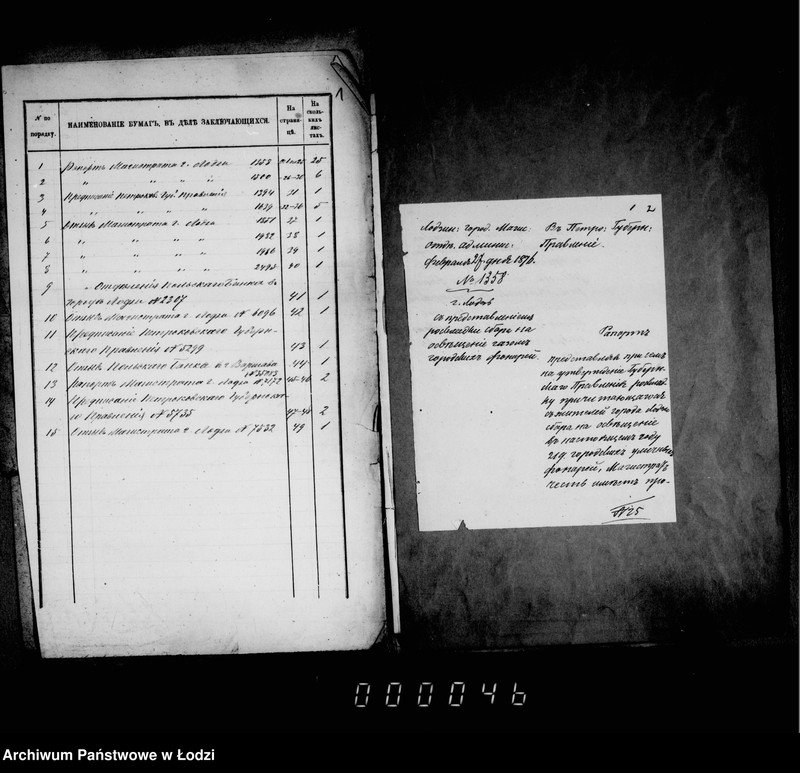 1
№ по порядку.
НАИМЕНОВАНІЕ БУМАГЪ, ВЪ ДѢЛѢ ЗАКЛЮЧАЮЩИХСЯ.
На страницѣ.
На сколькихъ листахъ.
1 Рапортъ Магистрата г. Лодзи 1358 25
2 " " " " 1500 6
3 Предписаніе Петроков. Губ. Правленія 1394 31 1
4 " " " " 1639 5
5 Отзывъ Магистрата г. Лодзи 1851 37 1
6 " " " " 1932 38 1
7 " " " " 39 1
8 " " " " 2498 40 1
9 " Отдѣленія Польскаго Банка въ
городѣ Лодзи № 2207 41 1
10 Отзывъ Магистрата г. Лодзи № 6096 42 1
11 Предписаніе Петроковскаго Губерн-
скаго Правленія № 5299 43 1
12 Отзывъ Польскаго Банка въ Варшавѣ 44 1
№ 35253
13 Рапортъ Магистрата г. Лодзи № 7172 45-46 2
14 Предписаніе Петроковскаго Губернска-
го Правленія № 5735 47-48 2
15 Отзывъ Магистрата г. Лодзи № 7532 49 1
1 2
Лодзин: город. Магис:
отдѣ. админи:
Февраля 27 дня 1876.
№ 1358
г. Лодзь
Съ представленіемъ
раскладки сбора на
освѣщеніе газомъ
городскихъ фонарей.
Въ Петро: Губерн:
Правленіе.
Рапортъ
Представляя при семъ
на утвержденіе Губерн-
скаго Правленія расклад-
ку причитающагося
съ жителей города Лодзи
сбора на освѣщеніе
въ настоящемъ году
219 городскихъ уличныхъ
фонарей, Магистратъ
честь имѣетъ про-
№ 25
000046
Archiwum Państwowe w Łodzi